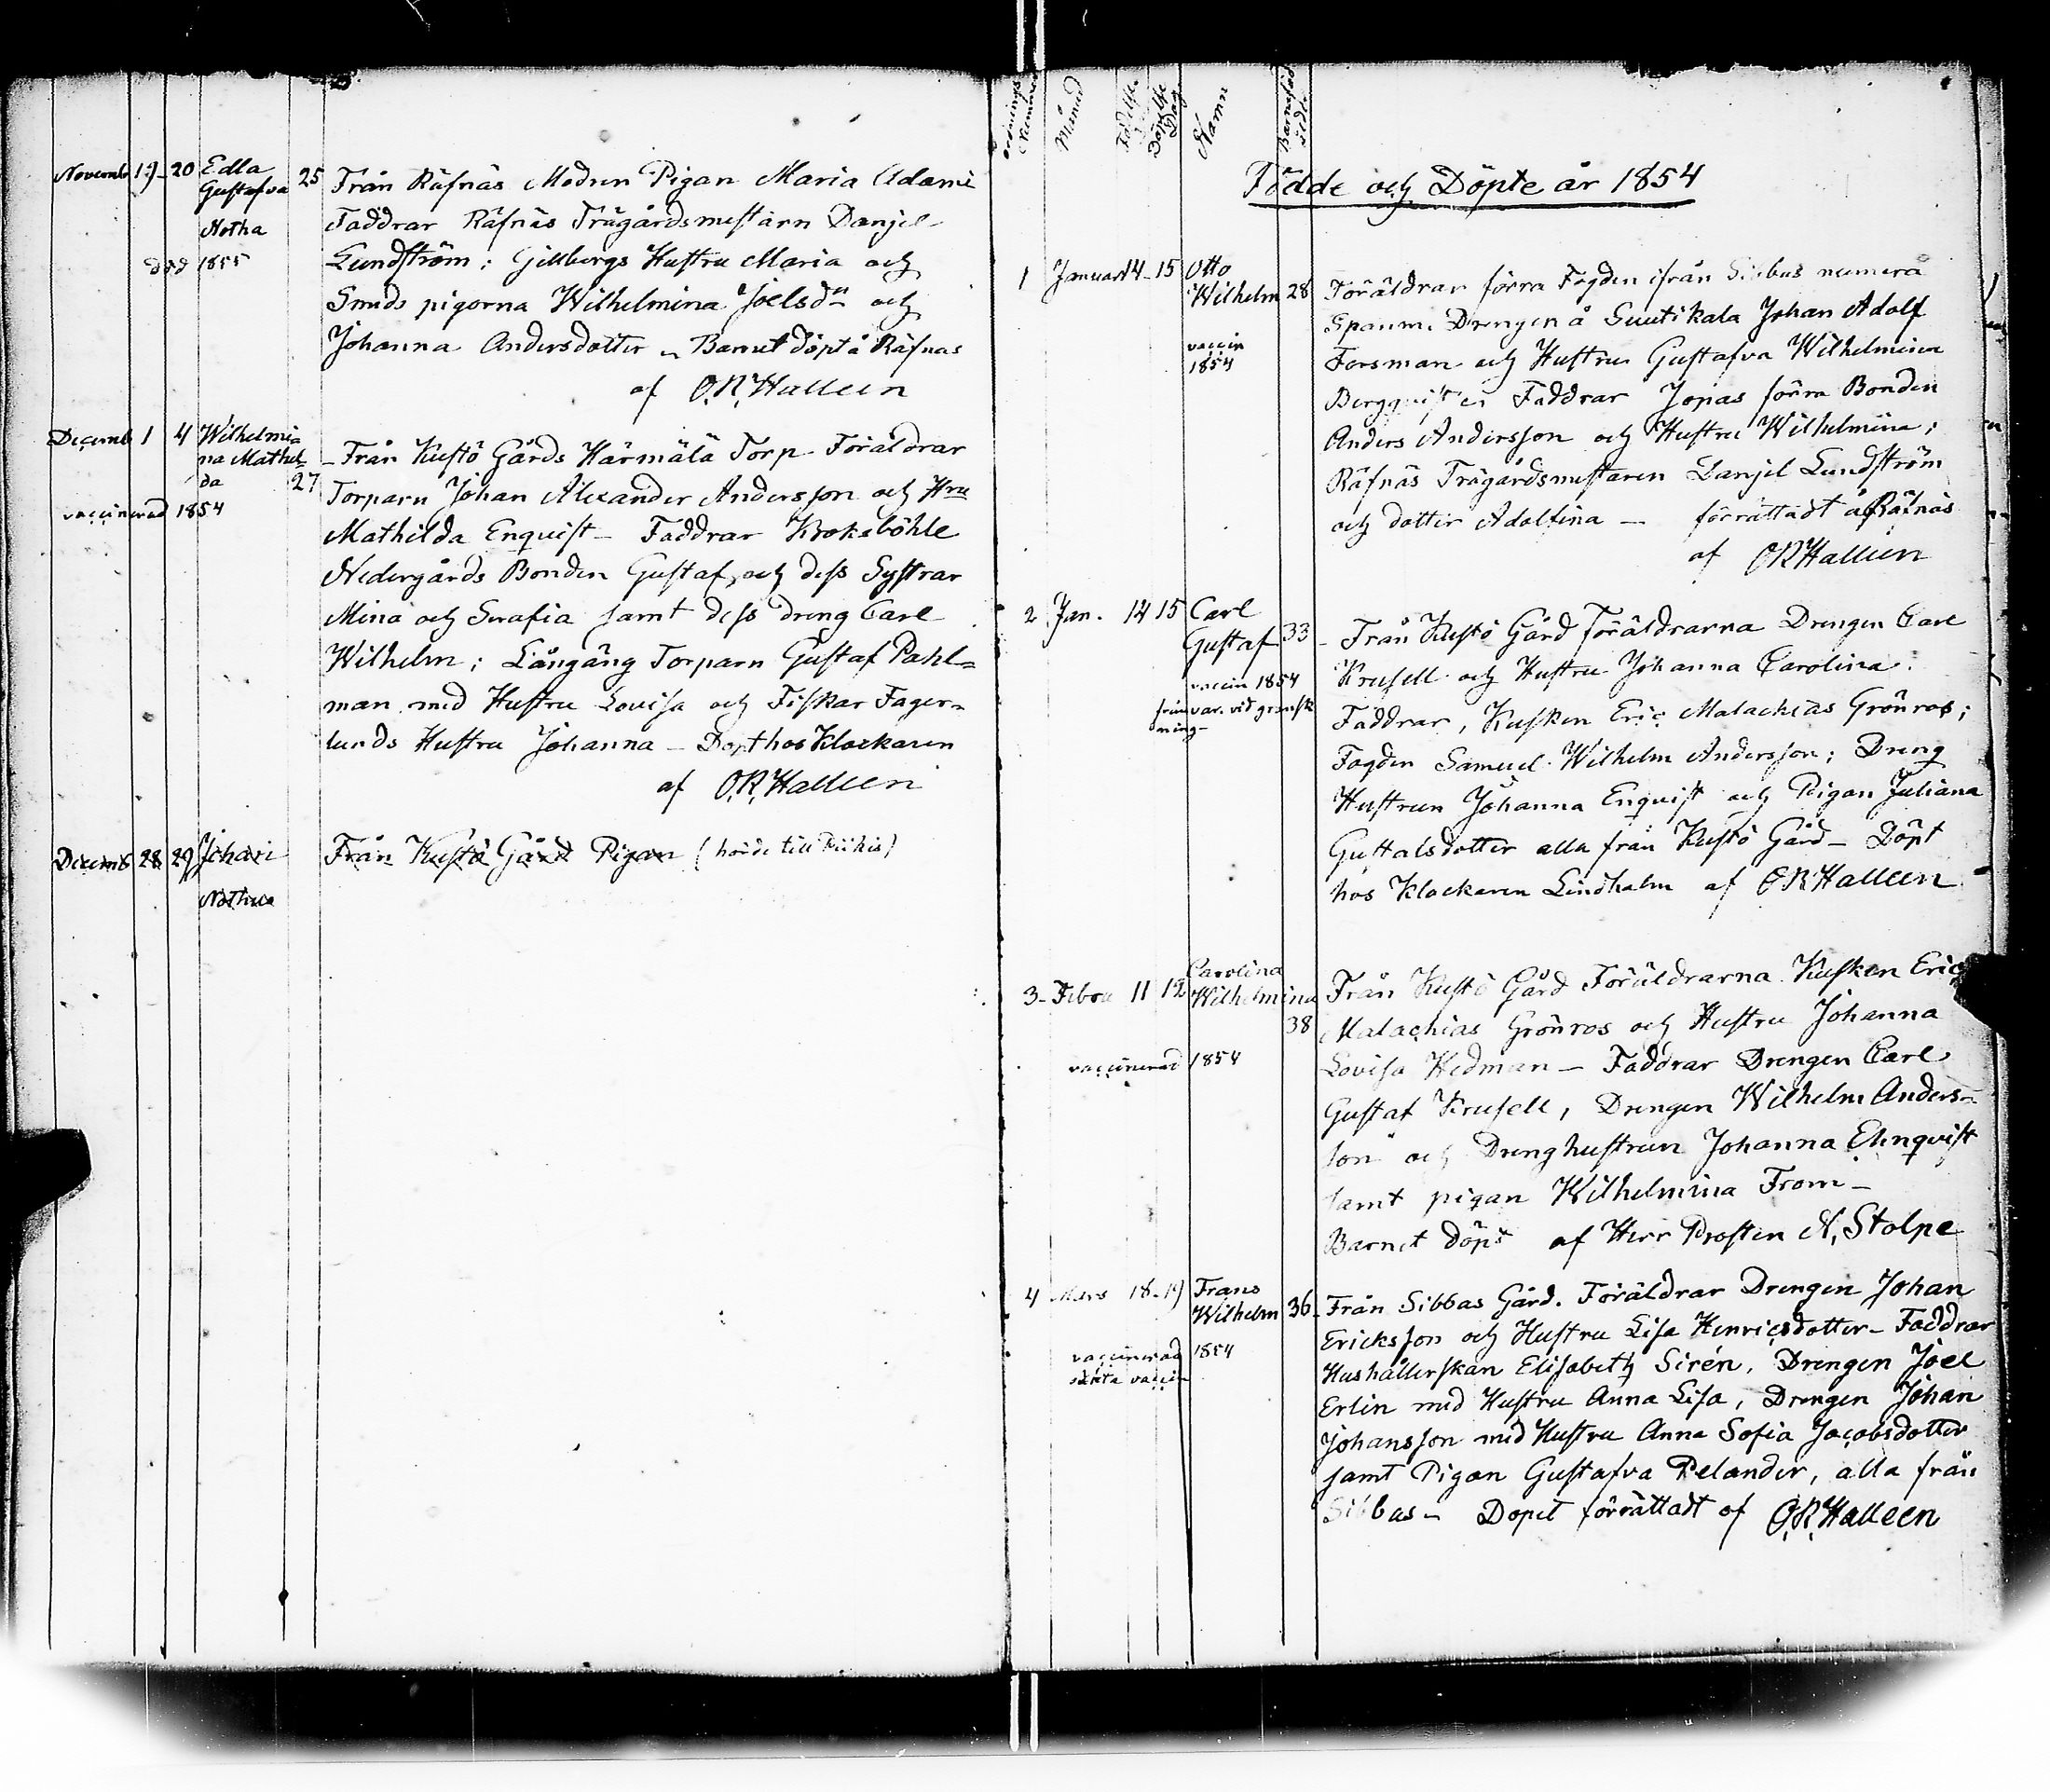 Novembr 19 - 20 Edla 25 Från Räfnäs Modren Pigan Maria Adami
Gustafva
Faddrar Räfnäs Trägårdsmestarn Danjel
Notha
död 1855 Lundström; Gillbergs Hustru Maria och
Smeds pigorna Wilhelmina Joelsdr och
Johanna Andersdotter - Barnet döpt å Räfnas
af O.R. Halleen
Decemb 1 4 Wilhelmi
na Mathel=
da 27
vaccinerad 1854
- Från Kustö Gårds Härmälä Torp - Föräldrar
Torparn Johan Alexander Andersson och Hru
Mathilda Enquist - Faddrar Kroksböhle
Nedergårds Bonden Gustaf, och dess Systrar
Mina och Serafia samt dess dreng Carl
Wilhelm; Långäng Torparn Gustaf Pahl=
man med Hustru Lovisa och Fiskar Fager=
lunds Hustru Johanna - Döpt hos Klockaren
af O.R. Halleen
Decemb 28 29 Johan Från Kustö Gård Pigan (hörde till Piikis)
Nothus
Ordnings Nummer Månad Födelse Döpelse Dag Namn Barnsföd
Födde och Döpte år 1854
1 Januar 14 - 15 Otto
Wilhelm 28
vaccin
1854
Föräldrar förra Fogden ifrån Sibbas numera
Spanm. Drengen å Suutikala Johan Adolf
Forsman och Hustru Gustafva Wilhelmina
Bergquist Faddrar Jonas förra Bonden
Anders Andersson och Hustru Wilhelmina;
Räfnäs Trägårdsmestaren Danjel Lundström
och dotter Adolfina - förrättadt å Räfnäs
af O R Halleen
2 Jan. 14 15 Carl
Gustaf 33
vaccin 1854
- Från Kustö Gård föräldrarna Drengen Carl
Krusell och Hustru Johanna Carolina.
Faddrar, Kusken Eric Malachias Grönros;
Fogden Samuel Wilhelm Andersson; Dreng
Hustrun Johanna Enqvist och Pigan Juliana
Guttalsdotter alla från Kustö Gård - Döpt
hos Klockaren Lindholm af O R Halleen
3 - Febru 11 12 Carolina
Wilhelmina
38
vaccinerad 1854
Från Kustö Gård Föräldrarna Kusken Eric
Malachias Grönros och Hustru Johanna
Lovisa Hedman - Faddrar Drengen Carl
Gustaf Krusell, Drengen Wilhelm Anders=
son och Drenghustrun Johanna Ehnqvist
samt pigan Wilhelmina From -
Barnet döpt af Herr Prosten N. Stolpe
4 Mars 18 - 19 Frans
Wilhelm 36
vaccinerad 1854
äkta vaccin
Från Sibbas Gård. Föräldrar Drengen Johan
Ericksson och Hustru Lisa Henricsdotter - Faddrar
Hushållerskan Elisabeth Sirén, Drengen Joel
Erlin med Hustru Anna Lisa, Drengen Johan
Johansson med Hustru Anna Sofia Jacobsdotter
samt Pigan Gustafva Pelander, alla från
Sibbas - Dopet förrättadt af O.R. Halleen